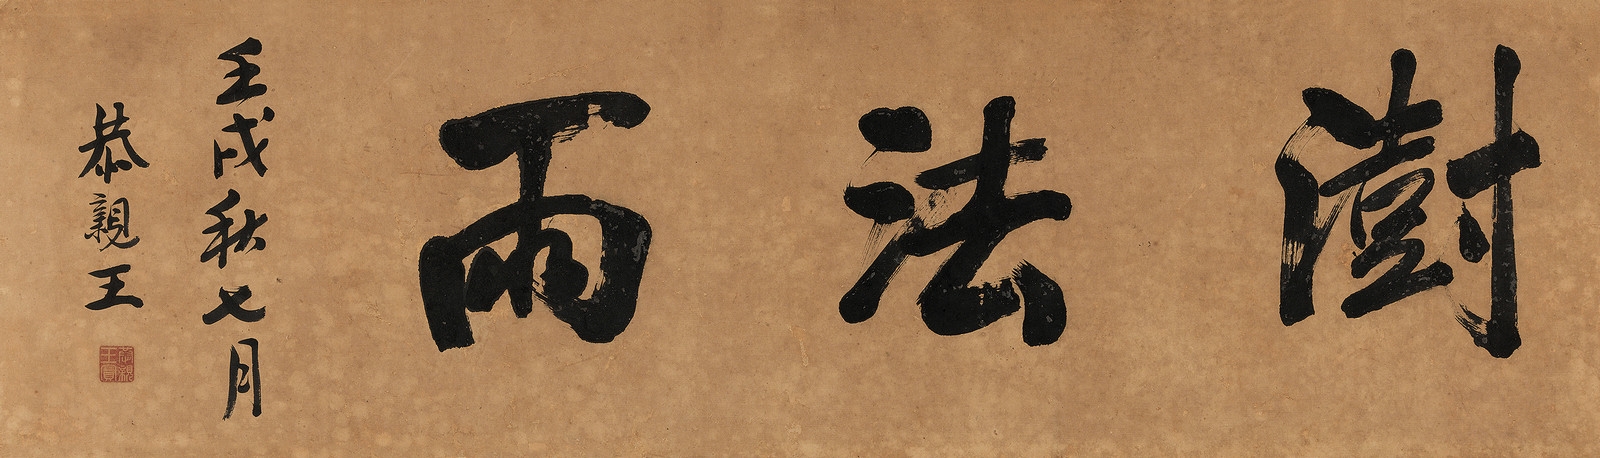 澍法雨
壬戌秋七月
恭親王